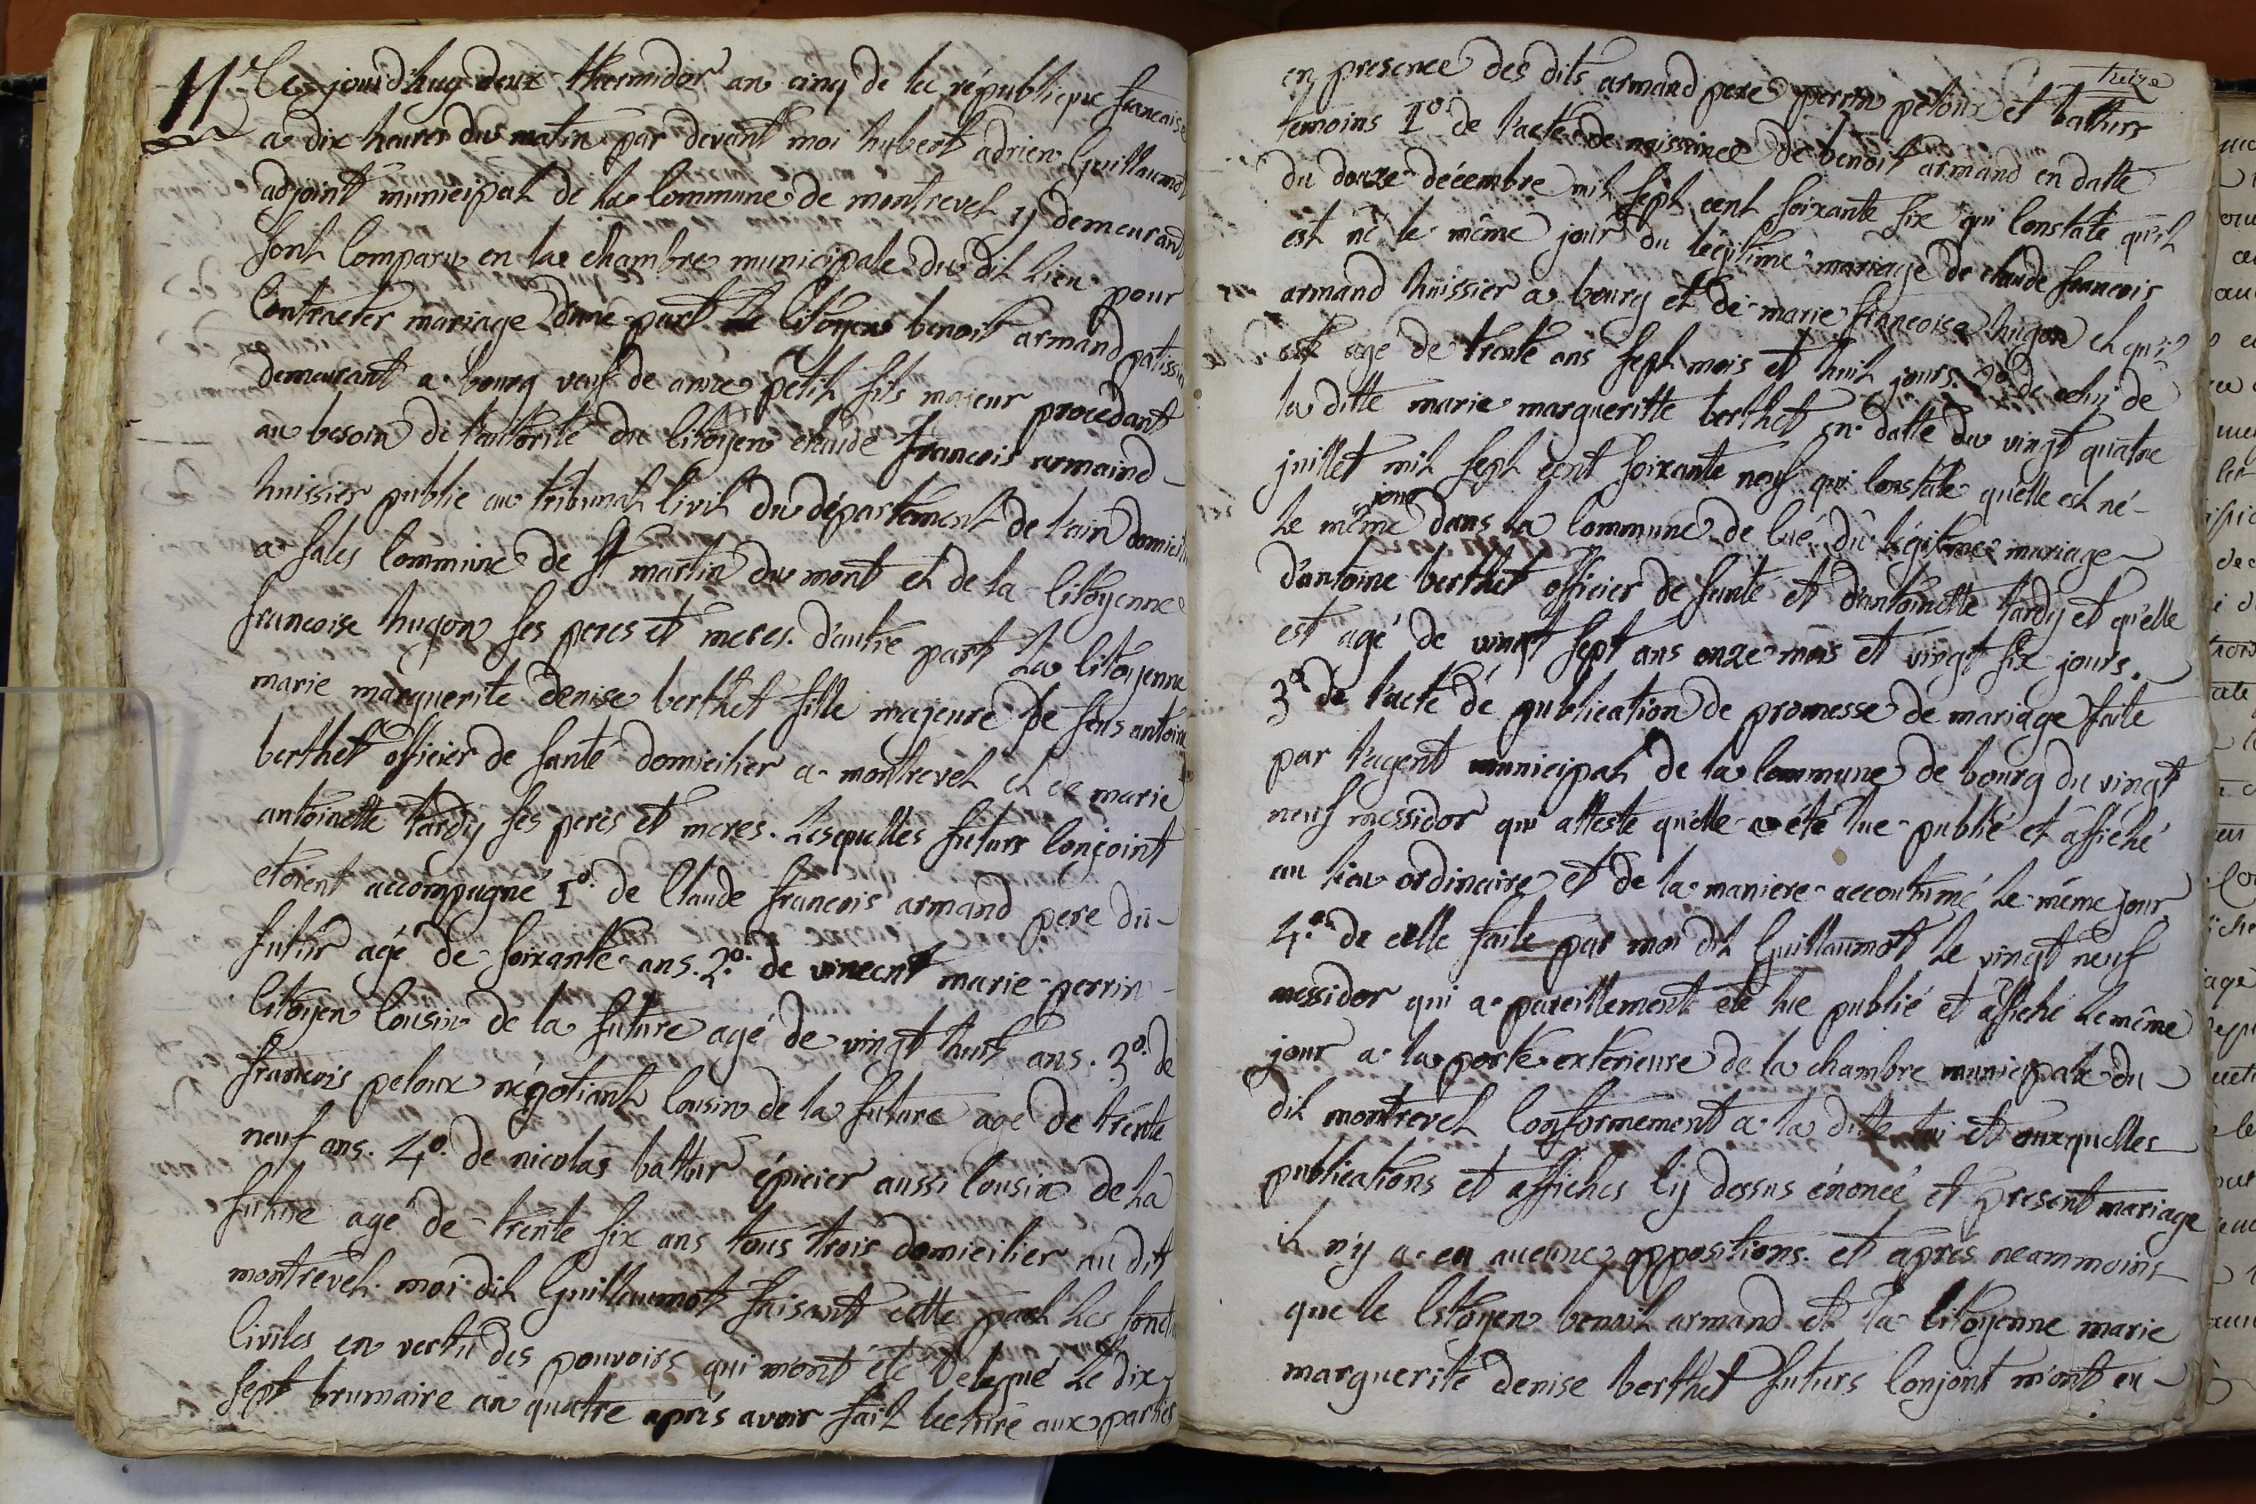 11e Ce jourd'huy deux thermidor an cinq de la république francaise
a dix heures du matin par devant moi hubert adrien Guillaumot
adjoint municipal de la Commune de montrevel y demeurant
sont Comparu en la chambre municipale du dit lieu pour
Contracter mariage d'une part le Citoyen benoit armand patissier
demeurant a bourg veuf de anne petit fils majeur procedant
au besoin de l'autorité du Citoyen claude francois armand
huissier public au tribunal Civil du département de l'ain domicilié
a sales Commune de St martin du mont et de la Citoyenne
francoise hugon ses peres et meres. d'autre part la Citoyenne
marie marguerite denise berthet fille majeure de sens antoine
berthet officier de santé domicilier a montrevel et de marie
antoinette tardy ses peres et meres. Lesquelles futurs Conjoint
etoient accompagné 1o. de Claude francois armand pere du
futur agé de soixante ans. 2o. de vincent marie perrin
Citoyen Cousin de la future agé de vingt huit ans. 3o. de
francois peloux négotiant Cousin de la future agé de trente
neuf ans. 4o. de nicolas battur épicier aussi Cousin de la
future agé de trente six ans tous trois domicilier au dit
montrevel. moi dit Guillaumot faisant cette part les fonct
Civiles en vertu des pouvoirs qui m'ont été delegué le dix
sept brumaire an quatre aprés avoir fait lecture aux parties
treize
en presence des dits armand pere perrin peloux et batturs
temoins 1o. de l'acte de naissance de benoit armand en datte
du douze décembre mil sept cent soixante six qui Constate qu'il
est né le même jour du légitime mariage de claude francois
armand huissier a bourg et de marie francoise hugon et qu'il
est agé de trente ans sept mois et huit jours. 2o. de celui de
la ditte marie margueritte berthet en datte du vingt quatre
juillet mil sept cent soixante neuf qui Constate quelle est né
jour
le même dans la Commune de bué du légitime mariage
d'antoine berthet officier de santé et d'antoinette tardy et qu'elle
est agé de vingt sept ans onze mois et vingt six jours.
3o. de l'acte de publication de promesse de mariage faite
par l'agent municipal de la Commune de bourg du vingt
neuf messidor qui atteste qu'elle a été lue publié et affiché
au lieu ordinaire et de la maniere accoutumé le même jour
4o. de celle faite par moi dit Guillaumot le vingt neuf
messidor qui a pareillement été lue publié et affiché le même
jour a la porte exterieure de la chambre municipale du
dit montrevel Conformément a la ditte loi et auxquelles
publications et affiches Cy dessus énoncé et present mariage
il n'y a eu aucune oppositions. et aprés neammoins
que le Citoyen benoit armand et la Citoyenne marie
marguerite denise berthet futurs Conjont m'ont eu